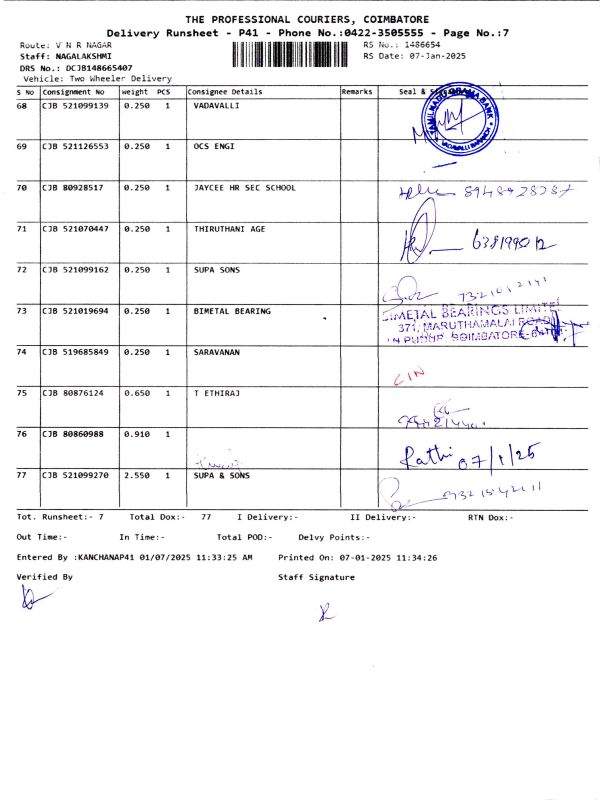 THE PROFESSIONAL COURIERS, COIMBATORE
Delivery Runsheet - P41 - Phone No.:0422-3505555 - Page No.:7
Route: V N R NAGAR RS No.: 1486654
Staff: NAGALAKSHMI RS Date: 07-Jan-2025
DRS No.: DCJB148665407
Vehicle: Two Wheeler Delivery
S No Consignment No Weight PCS Consignee Details Remarks Seal &
68 CJB 521099139 0.250 1 VADAVALLI
69 CJB 521126553 0.250 1 OCS ENGI
70 CJB 80928517 0.250 1 JAYCEE HR SEC SCHOOL
71 CJB 521070447 0.250 1 THIRUTHANI AGE
72 CJB 521099162 0.250 1 SUPA SONS
73 CJB 521019694 0.250 1 BIMETAL BEARING
BIMETAL BEARINGS LIMITED
371, MARUTHAMALAI ROAD
74 CJB 519685849 0.250 1 SARAVANAN
75 CJB 80876124 0.650 1 T ETHIRAJ
76 CJB 80860988 0.910 1 Rathi 07/1/25
77 CJB 521099270 2.550 1 SUPA & SONS
Tot. Runsheet:- 7 Total Dox:- 77 I Delivery:- II Delivery:- RTN Dox:-
Out Time:- In Time:- Total POD:- Delvy Points:-
Entered By :KANCHANAP41 01/07/2025 11:33:25 AM Printed On: 07-01-2025 11:34:26
Verified By Staff Signature